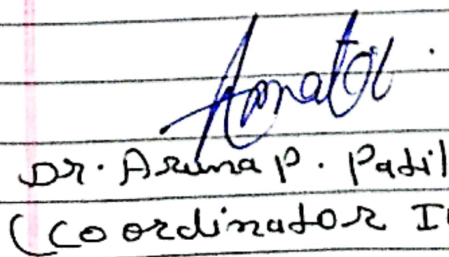 Dr. Aruna P. Patil
(Coordinator I